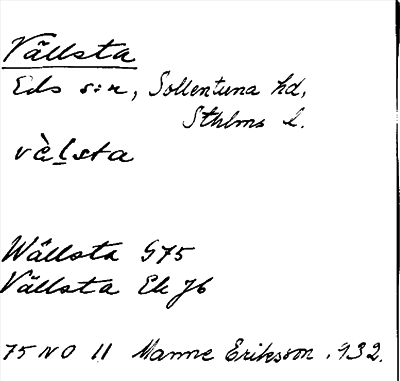 Vällsta
Eds s:n, Sollentuna hd,
Sthlms l.
vè̀lsta
Wällsta G75
Vällsta Ek Jb
75 NO 11 Manne Eriksson . 932.